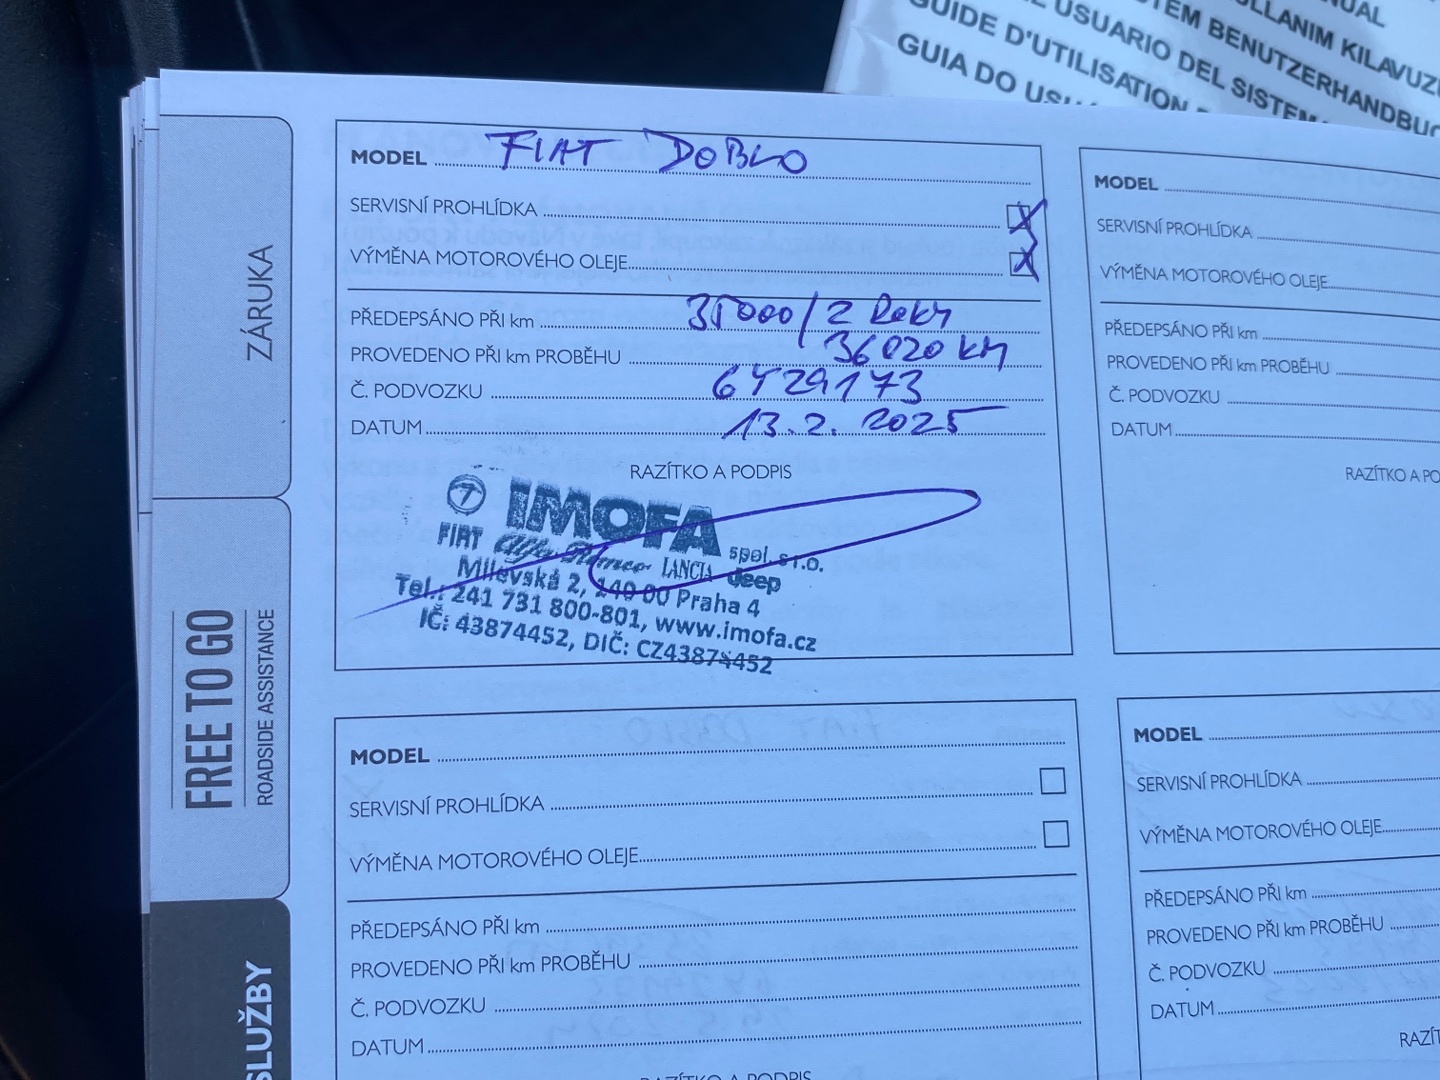 NUAL
KULLANIM KILAVUZU
STEM BENUTZERHANDBUC
USUARIO DEL SISTEMA
GUIDE D'UTILISATION
GUIA DO USUÁ
ZÁRUKA
FREE TO GO
ROADSIDE ASSISTANCE
SLUŽBY
MODEL FIAT DOBLO
SERVISNÍ PROHLÍDKA X
VÝMĚNA MOTOROVÉHO OLEJE X
PŘEDEPSÁNO PŘI km 35000/2 Roky
PROVEDENO PŘI km PROBĚHU 36020 KM
Č. PODVOZKU 6Y29173
DATUM 13.2.2025
RAZÍTKO A PODPIS
IMOFA spol. s r.o.
FIAT Alfa Romeo LANCIA Jeep
Milevská 2, 140 00 Praha 4
Tel.: 241 731 800-801, www.imofa.cz
IČ: 43874452, DIČ: CZ43874452
MODEL
SERVISNÍ PROHLÍDKA
VÝMĚNA MOTOROVÉHO OLEJE
PŘEDEPSÁNO PŘI km
PROVEDENO PŘI km PROBĚHU
Č. PODVOZKU
DATUM
RAZÍTKO A PO
MODEL
SERVISNÍ PROHLÍDKA
VÝMĚNA MOTOROVÉHO OLEJE
PŘEDEPSÁNO PŘI km
PROVEDENO PŘI km PROBĚHU
Č. PODVOZKU
DATUM
RAZÍTKO A PODPIS
MODEL
SERVISNÍ PROHLÍDKA
VÝMĚNA MOTOROVÉHO OLEJE
PŘEDEPSÁNO PŘI km
PROVEDENO PŘI km PROBĚHU
Č. PODVOZKU
DATUM
RAZÍT